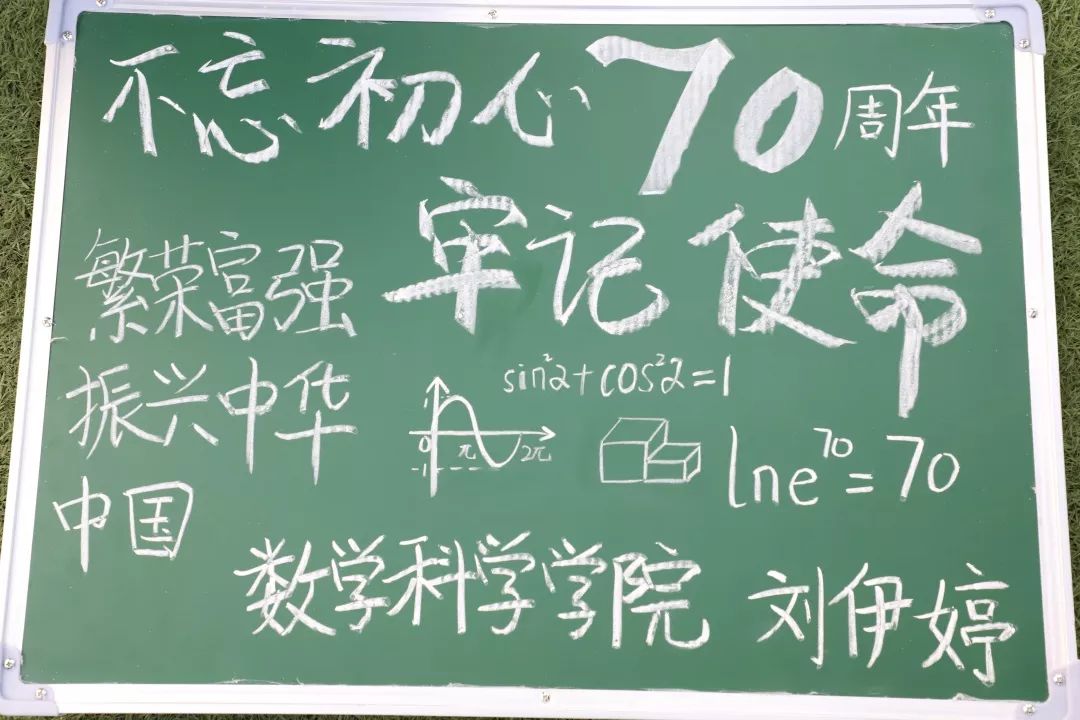 不忘初心70周年
牢记使命
繁荣富强
振兴中华
中国
sin²2+cos²2=1
1
0
π
2π
-1
lne⁷⁰=70
数学科学学院 刘伊婷